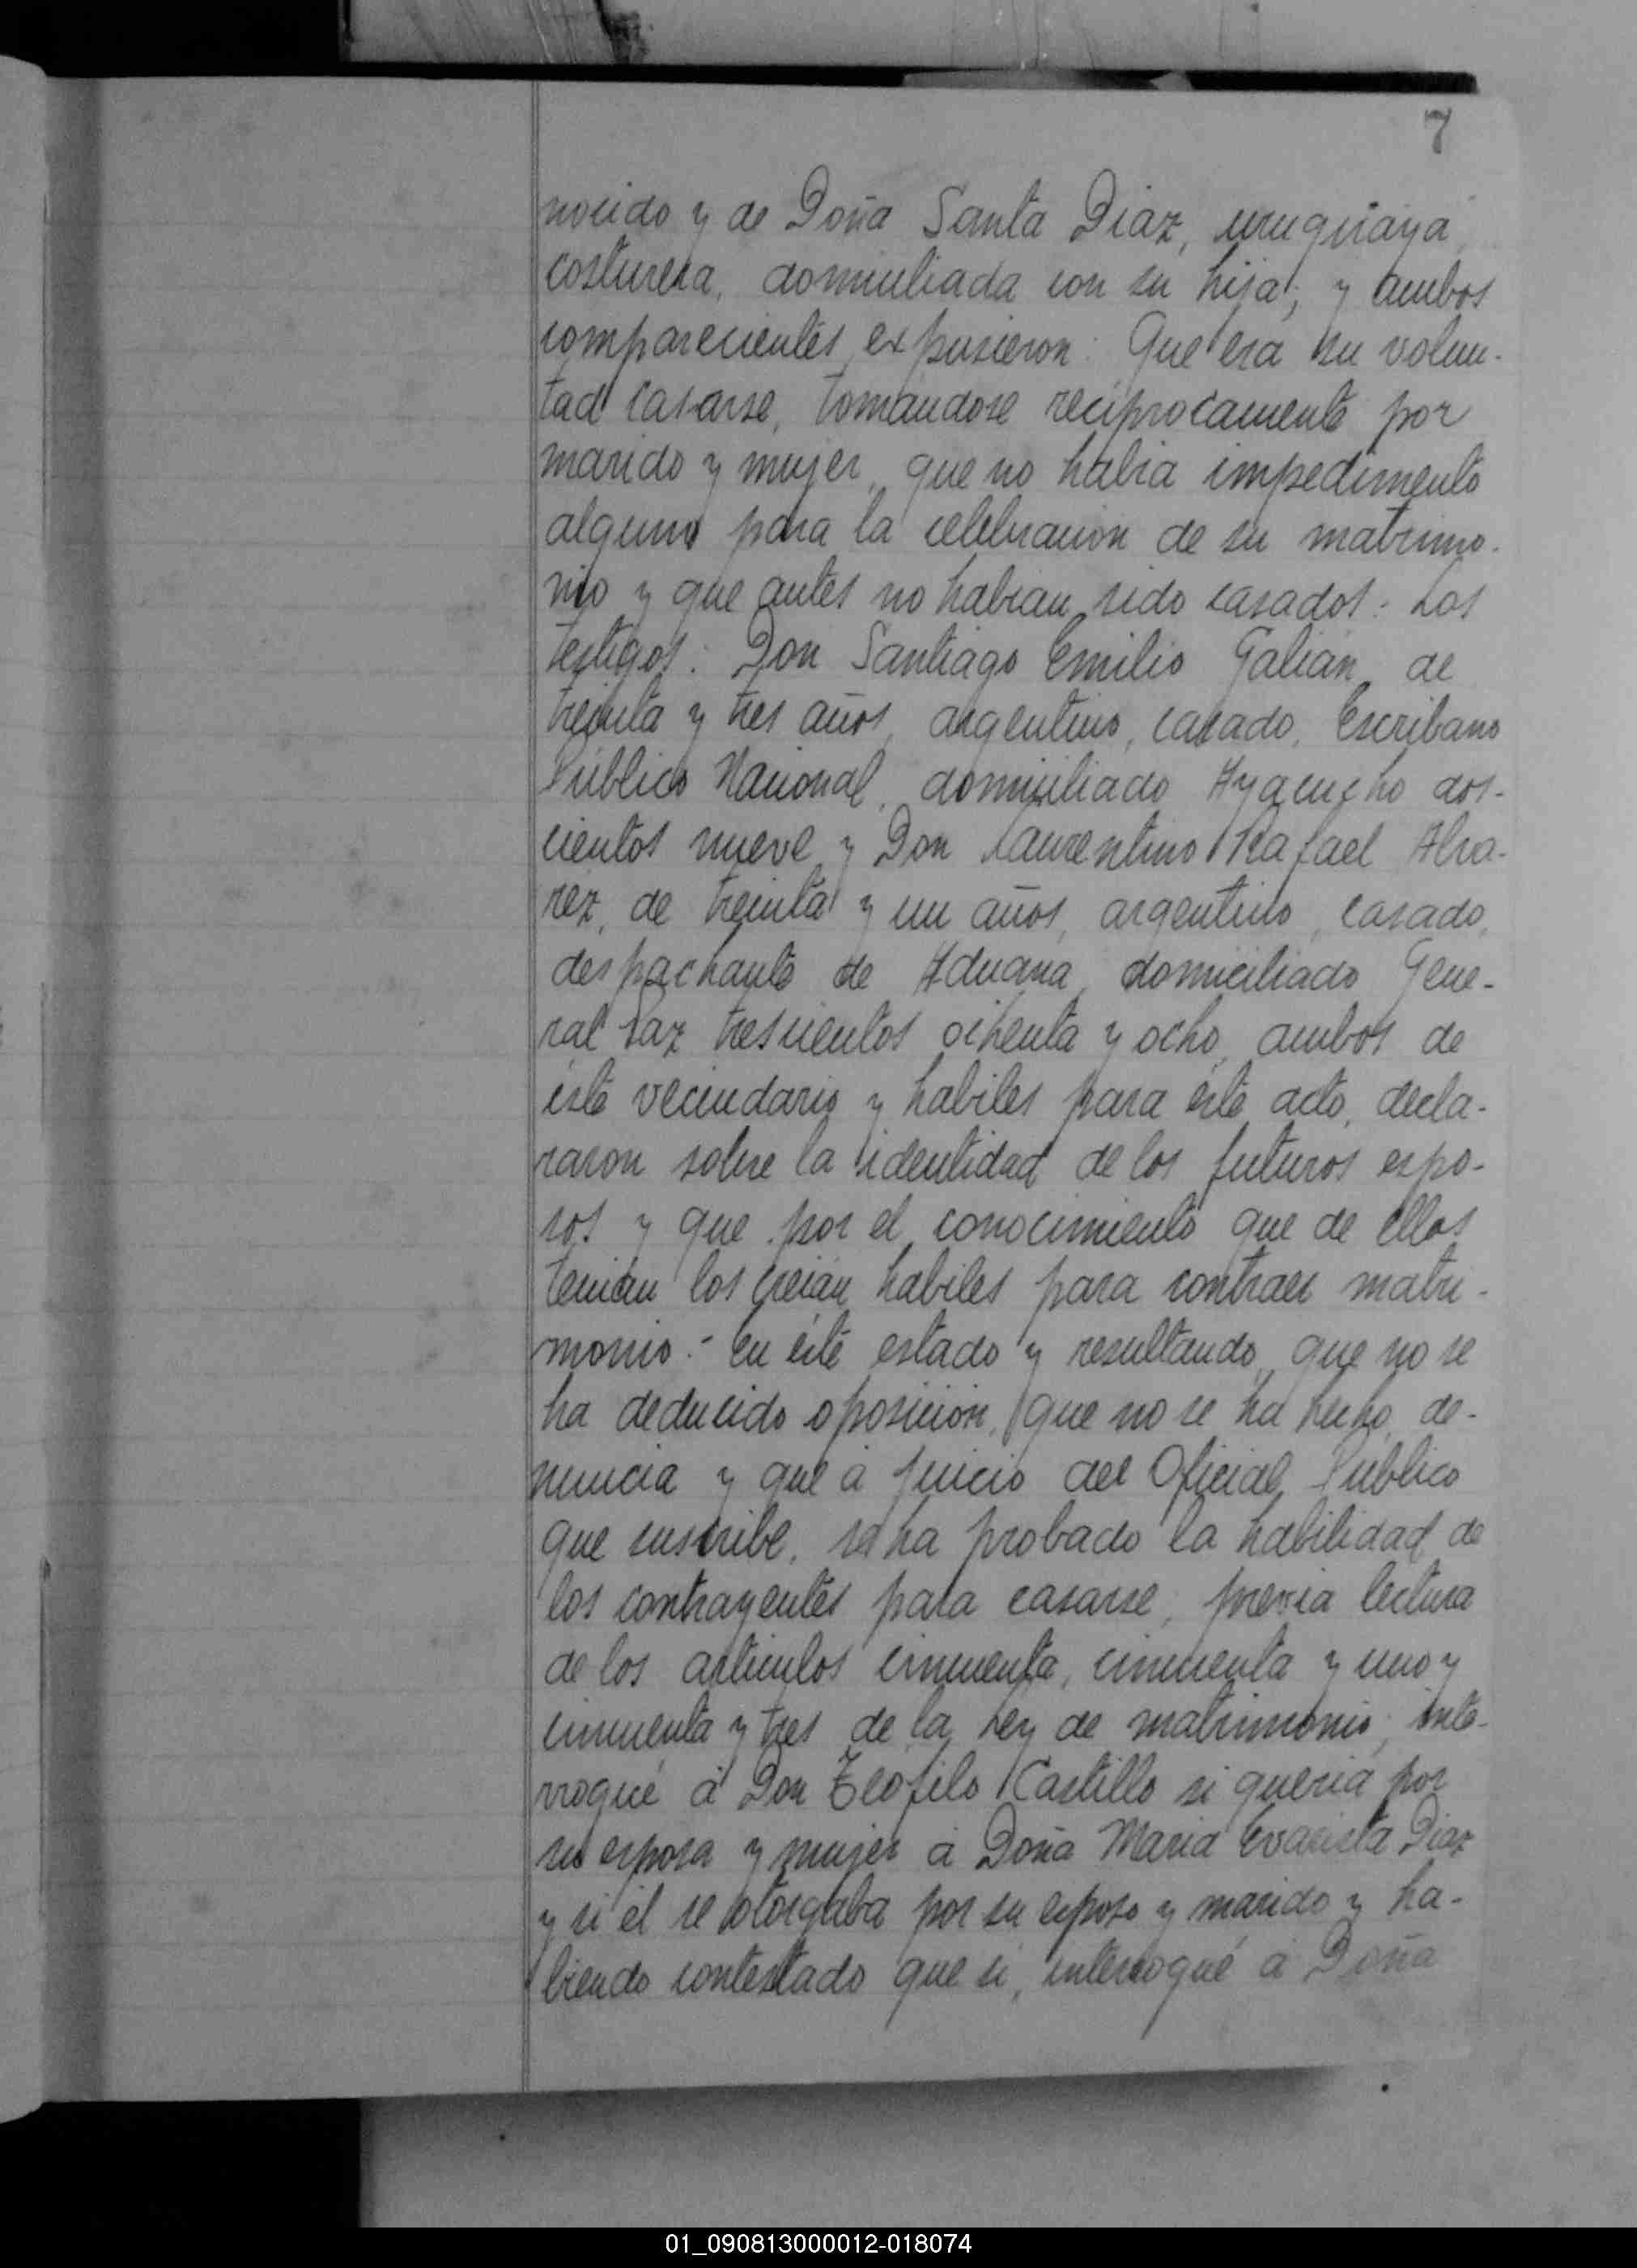 7
nocido y de Doña Santa Diaz, uruguaya,
costurera, domiciliada con su hija; y ambos
comparecientes expusieron: Que era su volun-
tad casarse, tomandose reciprocamente por
marido y mujer, que no habia impedimento
alguno para la celebracion de su matrimo-
nio y que antes no habian sido casados.- Los
testigos: Don Santiago Emilio Galian, de
treinta y tres años, argentino, casado, Escribano
Público Nacional, domiciliado Ayacucho dos-
cientos nueve y Don Laurentino Rafael Alva-
rez, de treinta y un años, argentino, casado,
despachante de Aduana, domiciliado Gene-
ral Paz trescientos ochenta y ocho, ambos de
éste vecindario y habiles para éste acto, decla-
raron sobre la identidad de los futuros espo-
sos y que por el conocimiento que de ellos
tenian los creian habiles para contraer matri-
monio.- En éste estado y resultando, que no se
ha deducido oposicion, que no se ha hecho de-
nuncia y que á juicio del Oficial Público
que suscribe, se ha probado la habilidad de
los contrayentes para casarse, previa lectura
de los articulos cincuenta, cincuenta y uno y
cincuenta y tres de la Ley de matrimonio, inte-
rroqué á Don Teofilo Castillo si queria por
su esposa y mujer á Doña Maria Evarista Diaz
y si él se otorgaba por su esposo y marido y ha-
biendo contestado que si, interroqué á Doña
01_090813000012-018074